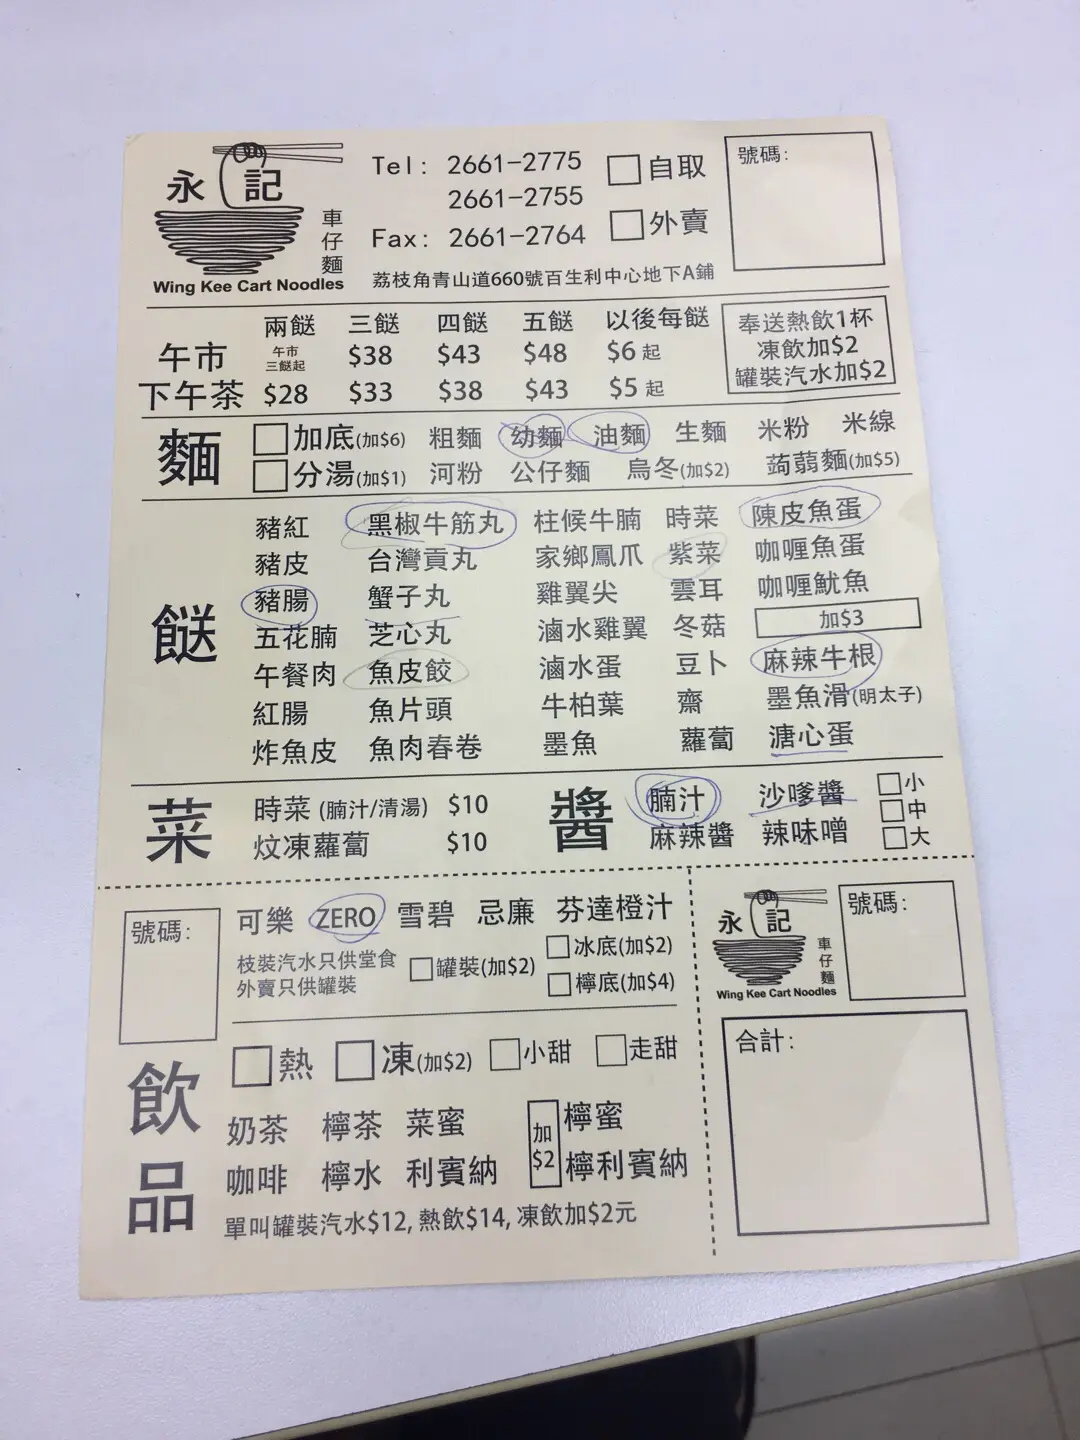 永記
車仔麵
Wing Kee Cart Noodles
Tel: 2661-2775
2661-2755
Fax: 2661-2764
自取
外賣
號碼:
荔枝角青山道660號百生利中心地下A鋪
兩餸 三餸 四餸 五餸 以後每餸
午市 午市三餸起 $38 $43 $48 $6起
下午茶 $28 $33 $38 $43 $5起
奉送熱飲1杯
凍飲加$2
罐裝汽水加$2
麵
加底(加$6) 粗麵 幼麵 油麵 生麵 米粉 米線
分湯(加$1) 河粉 公仔麵 烏冬(加$2) 蒟蒻麵(加$5)
餸
豬紅 黑椒牛筋丸 柱候牛腩 時菜 陳皮魚蛋
豬皮 台灣貢丸 家鄉鳳爪 紫菜 咖喱魚蛋
豬腸 蟹子丸 雞翼尖 雲耳 咖喱魷魚
五花腩 芝心丸 滷水雞翼 冬菇 加$3
午餐肉 魚皮餃 滷水蛋 豆卜 麻辣牛根
紅腸 魚片頭 牛柏葉 齋 墨魚滑(明太子)
炸魚皮 魚肉春卷 墨魚 蘿蔔 溏心蛋
菜
時菜 (腩汁/清湯) $10
炆凍蘿蔔 $10
醬
腩汁 沙嗲醬
麻辣醬 辣味噌
小
中
大
號碼:
可樂 ZERO 雪碧 忌廉 芬達橙汁
枝裝汽水只供堂食
外賣只供罐裝
罐裝(加$2)
冰底(加$2)
檸底(加$4)
飲品
熱 凍(加$2) 小甜 走甜
奶茶 檸茶 菜蜜 加$2 檸蜜
咖啡 檸水 利賓納 檸利賓納
單叫罐裝汽水$12, 熱飲$14, 凍飲加$2元
永記
車仔麵
Wing Kee Cart Noodles
號碼:
合計: